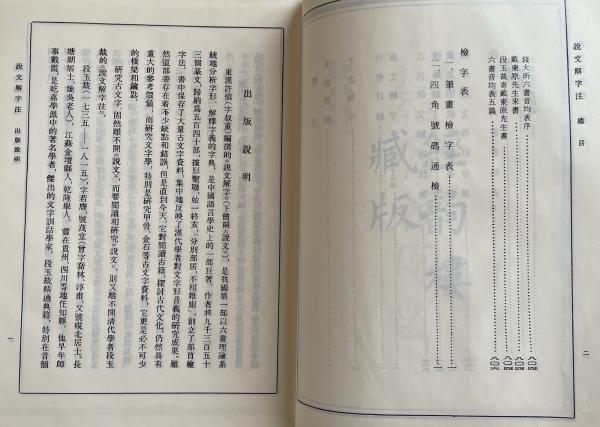 說文解字注　總目
二
錢大昕六書音均表序……八〇四
戴東原先生來書……八〇四
段玉裁寄戴東原先生書……八〇四
六書音均表五篇……八〇六
檢字表
一、筆畫檢字表……一
二、四角號碼通檢……
出版說明
東漢許慎（字叔重）編撰的《說文解字》（下簡稱《說文》），是我國第一部以六書理論系
統地分析字形、解釋字義的字典，是中國語言學史上的一部巨著。作者將九千三百五十
三個篆文，歸納爲五百四十部，據形繫聯，始一終亥，「分別部居，不相雜廁」，創立了部首檢
字法。書中保存了大量古文字資料，集中地反映了漢代學者對文字形音義的研究成果。雖
然這部書存在着不少缺點和錯誤，但是直到今天，它對閱讀古籍、探討古代文化，仍然具有
重大的參考價值。而研究文字學，特別是研究甲骨、金石等古文字資料，它更是必不可少
的橋樑和鑰匙。
研究古文字，固然離不開《說文》，而要閱讀和研究《說文》，則又離不開清代學者段玉
裁的《說文解字注》。
段玉裁（一七三五——一八一五），字若膺，號茂堂（曾字喬林、淳甫，又號硯北居士、長
塘湖居士、僑吳老人），江蘇金壇縣人，乾隆舉人。嘗在貴州、四川等地任知縣。他早年師
事戴震，是乾嘉學派中的著名學者，傑出的文字訓詁學家。段玉裁精通典籍，特別在音韻
說文解字注　出版說明
一